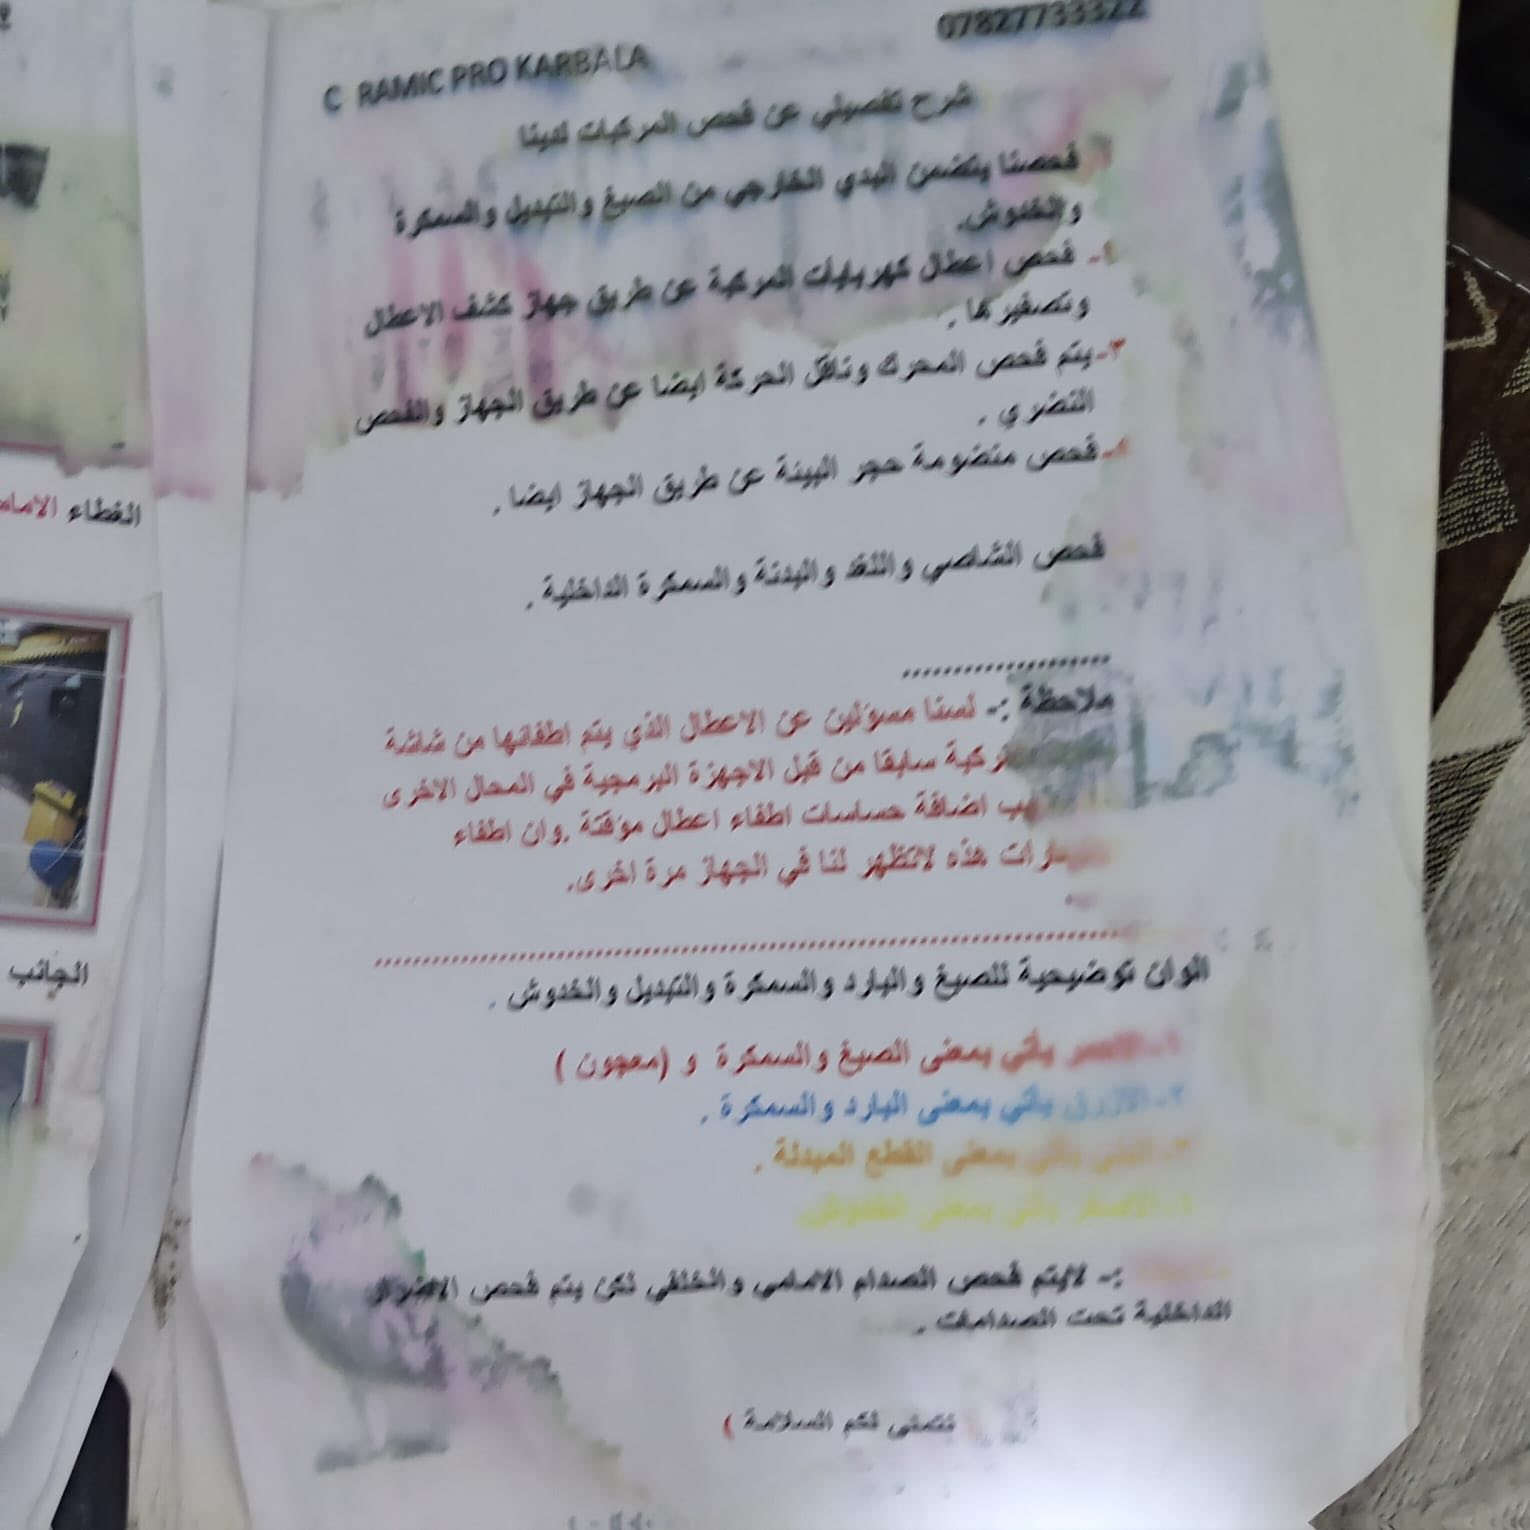 C RAMIC PRO KARBALA
07827733322
شرح تفصيلي عن فحص المركبات لدينا
فحصنا يتضمن البدي الخارجي من الصبغ والتبديل والسمكرة
والخدوش.
فحص اعطال كهربايات المركبة عن طريق جهاز كشف الاعطال
وتصفيرها .
٣-يتم فحص المحرك وناقل الحركة ايضا عن طريق الجهاز والفحص
النضري .
فحص منضومة حجر البيئة عن طريق الجهاز ايضا .
فحص الشاصي واللقد والبدنة والسمكرة الداخلية .
ملاحظة :- لسنا مسؤلين عن الاعطال الذي يتم اطفائها من شاشة
سابقا من قبل الاجهزة البرمجية في المحال الاخرى
اضافة حساسات اطفاء اعطال مؤقتة .وان اطفاء
هذه لاتظهر لنا في الجهاز مرة اخرى.
الوان توضيحية للصبغ والبارد والسمكرة والتبديل والخدوش .
يأتي بمعنى الصبغ والسمكرة و (معجون )
٢-الازرق يأتي بمعنى البارد والسمكرة .
يأتي بمعنى القطع المبدلة .
٤-الاصفر يأتي بمعنى الخدوش
:- لايتم فحص الصدام الامامي والخلفي لكن يتم فحص الاضرار
الداخلية تحت الصدامات .
نتمنى لكم السلامة )
الغطاء الاما
الجانب